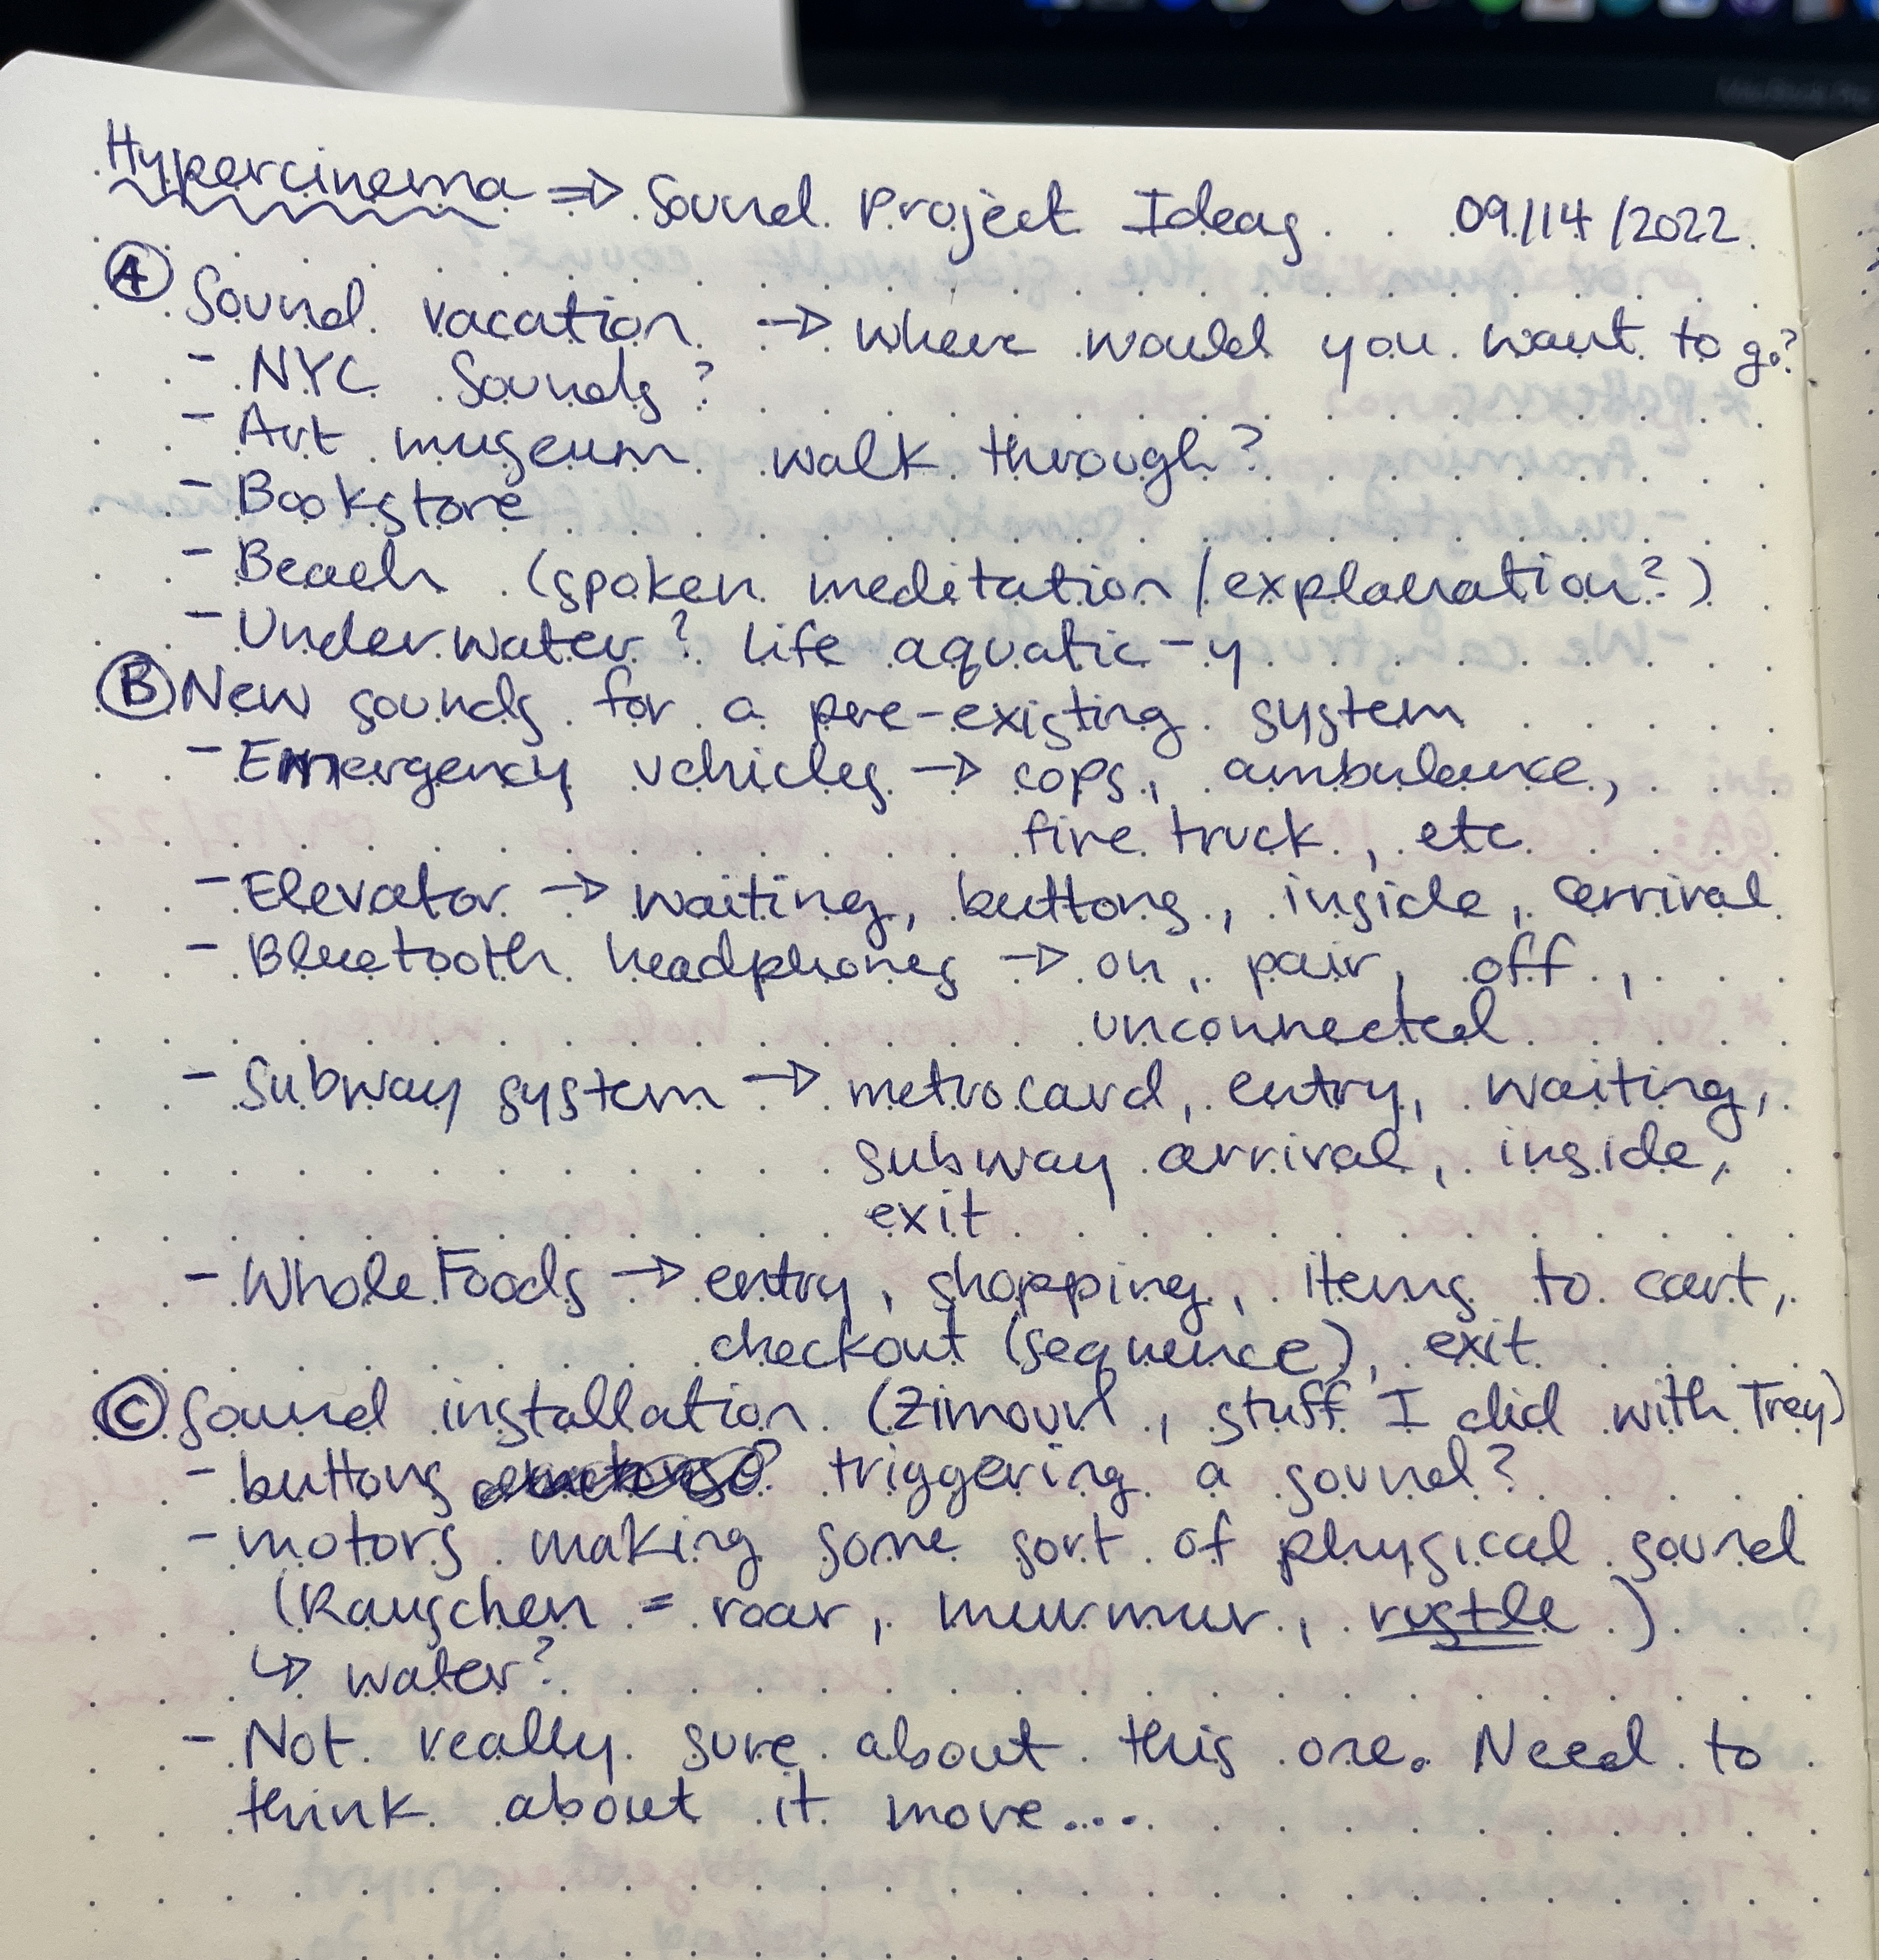 Hypercinema => Sound Project Ideas 09/14/2022
Ⓐ Sound vacation → where would you want to go?
- NYC Sounds?
- Art museum walk through?
- Bookstore
- Beach (spoken meditation/explanation?)
- Underwater? Life aquatic-y
Ⓑ New sounds for a pre-existing system
- Emergency vehicles → cops, ambulance,
fire truck, etc.
- Elevator → waiting, buttons, inside, arrival
- Bluetooth headphones → on, pair, off,
unconnected
- Subway system → metrocard, entry, waiting,
subway arrival, inside,
exit
- Whole Foods → entry, shopping, items to cart,
checkout (sequence), exit
Ⓒ Sound installation (Zimoun, stuff I did with Trey)
- buttons triggering a sound?
- motors making some sort of physical sound
(Rauschen = roar, murmur, rustle)
↳ water?
- Not really sure about this one. Need to
think about it more....